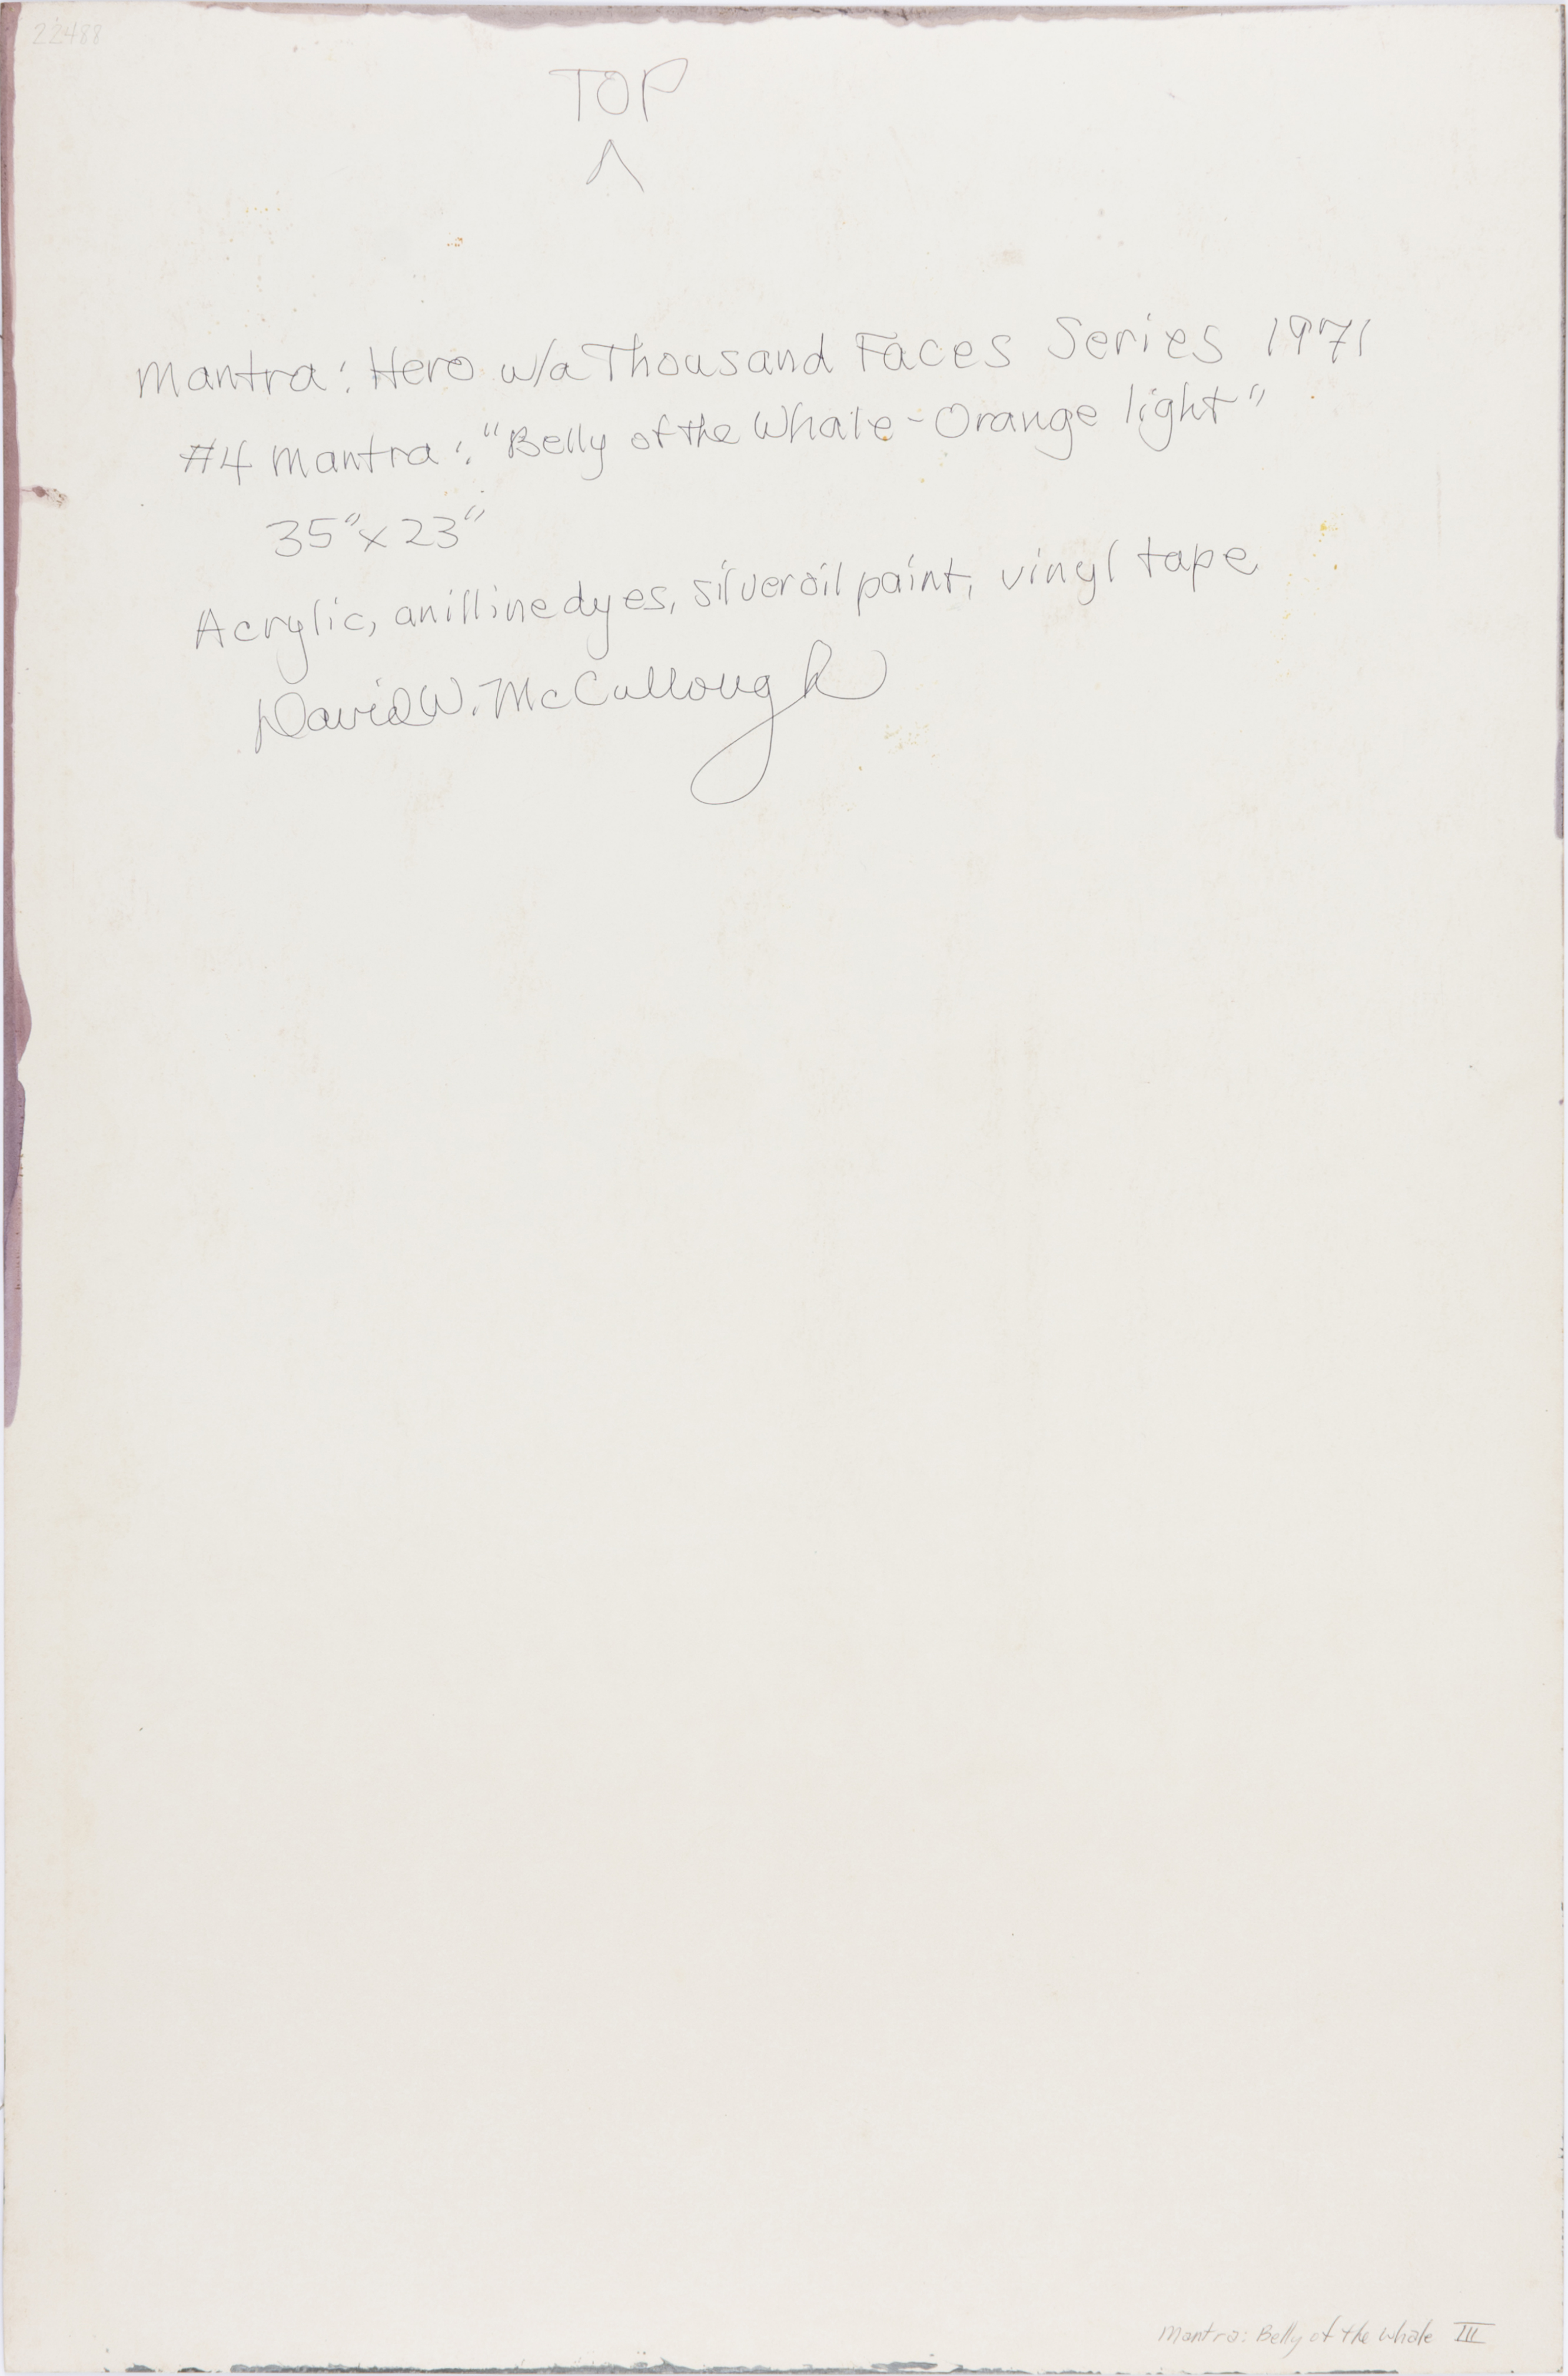 22488
TOP
^
Mantra: Hero w/a Thousand Faces Series 1971
#4 Mantra: "Belly of the Whale - Orange light"
35" x 23"
Acrylic, anilline dyes, silver oil paint, vinyl tape
David W. McCullough
Mantra: Belly of the Whale III